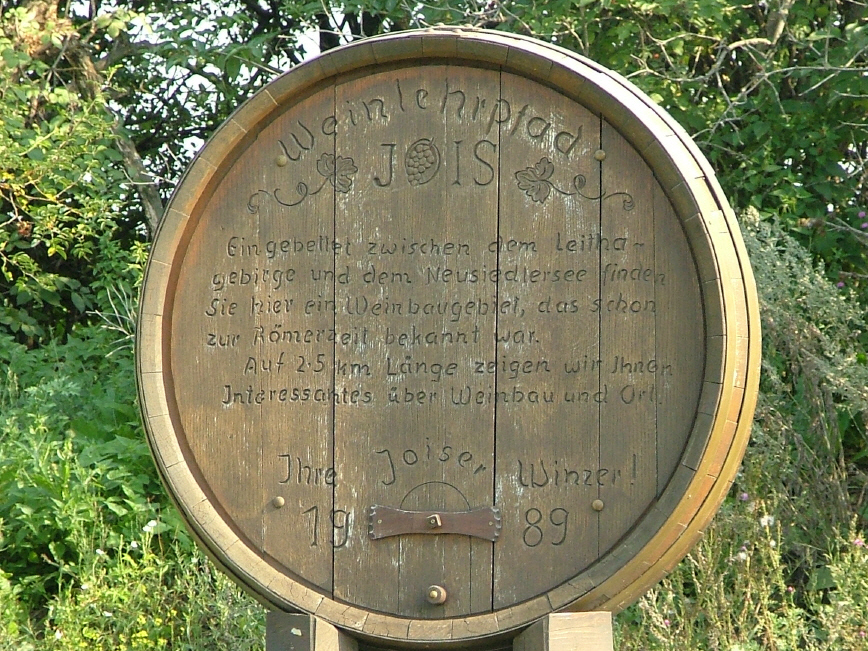 Weinlehrpfad
JOIS
Eingebettet zwischen dem Leitha-
gebirge und dem Neusiedlersee finden
Sie hier ein Weinbaugebiet, das schon
zur Römerzeit bekannt war.
Auf 2.5 km Länge zeigen wir Ihnen
Interessantes über Weinbau und Ort.
Ihre Joiser Winzer!
1989